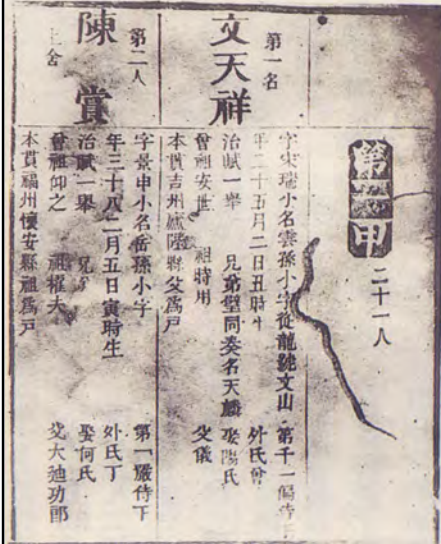 第一甲 二十一人
第一名
文天祥
字宋瑞小名雲孫小字從龍號文山 第千一偏侍下
年二十五月二日丑時生 外氏曾
治賦一舉 兄弟璧同奏名天麟 娶陽氏
曾祖安世 祖時用 父儀
本貫吉州廬陵縣父爲戶
第二人
陳賞
上舍
字景申小名岳孫小字 第一嚴侍下
年三十八二月五日寅時生 外氏丁
治賦一舉 兄 娶何氏
曾祖仰之 祖權夫 父大廸功郎
本貫福州懷安縣祖爲戶